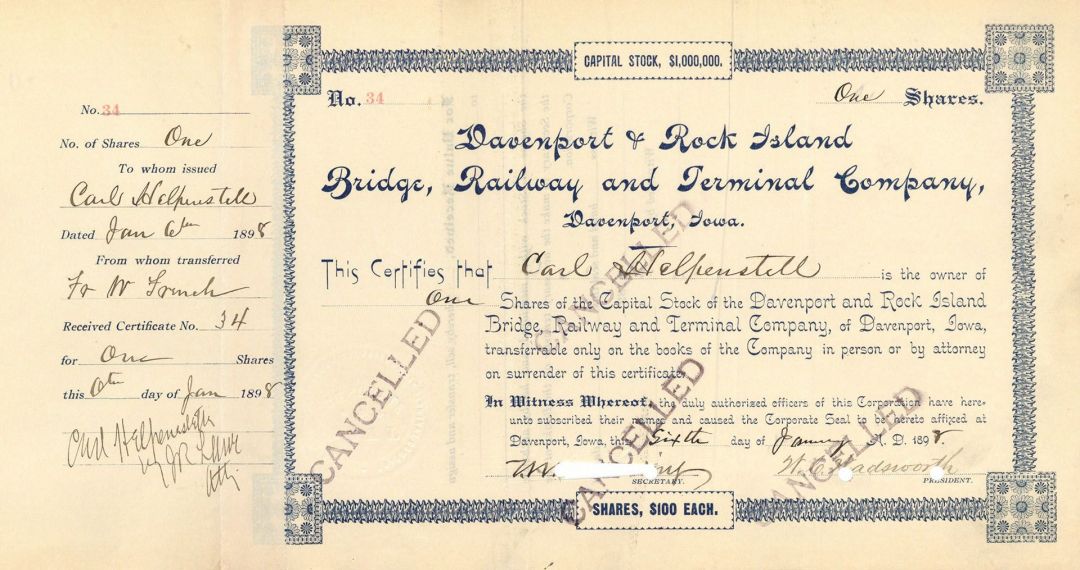 No. 34
No. of Shares One
To whom issued
Carl Helpenstell
Dated Jan 6th 1898
From whom transferred
Fr W French
Received Certificate No. 34
for One Shares
this 6th day of Jan 1898
Carl Helpenstell
by
Atty
CAPITAL STOCK, $1,000,000.
No. 34 One Shares.
Davenport & Rock Island
Bridge, Railway and Terminal Company,
Davenport, Iowa.
This Certifies that Carl Helpenstell is the owner of
One Shares of the Capital Stock of the Davenport and Rock Island
Bridge, Railway and Terminal Company, of Davenport, Iowa,
transferrable only on the books of the Company in person or by attorney
on surrender of this certificate.
In Witness Whereof, the duly authorized officers of this Corporation have here-
unto subscribed their names and caused the Corporate Seal to be hereto affixed at
Davenport, Iowa, this Sixth day of January A. D. 1898
W. C. Wadsworth
SECRETARY. PRESIDENT.
SHARES, $100 EACH.
CANCELLED
CANCELLED
CANCELLED
CANCELLED